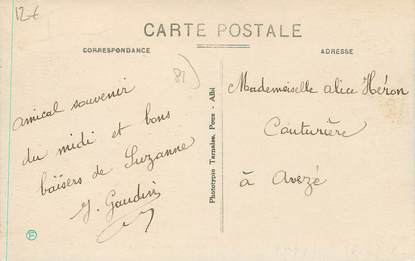 12€
CARTE POSTALE
CORRESPONDANCE
ADRESSE
81)
amical souvenir
du midi et bons
baisers de Suzanne
J. Gaudin
Phototypie Tarnaise, Poux - Albi
Mademoiselle alice Héron
Couturière
à Avezé